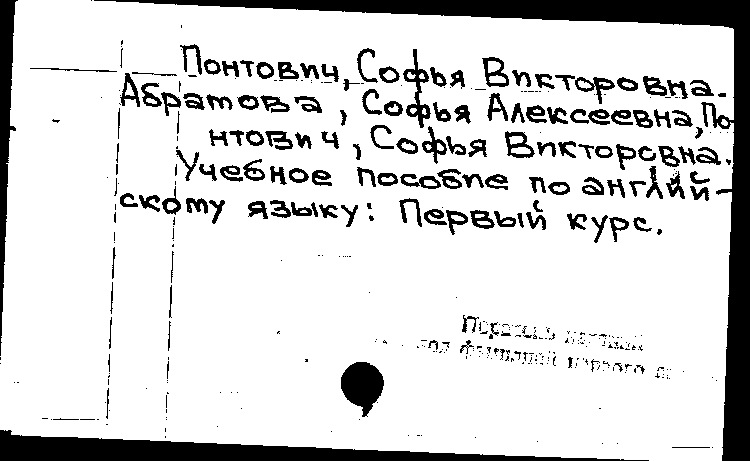 Понтович, Софья Викторовна.
Абратова, Софья Алексеевна, По-
нтович, Софья Викторовна.
Учебное пособие по англий-
скому языку: Первый курс.
фамилией первого